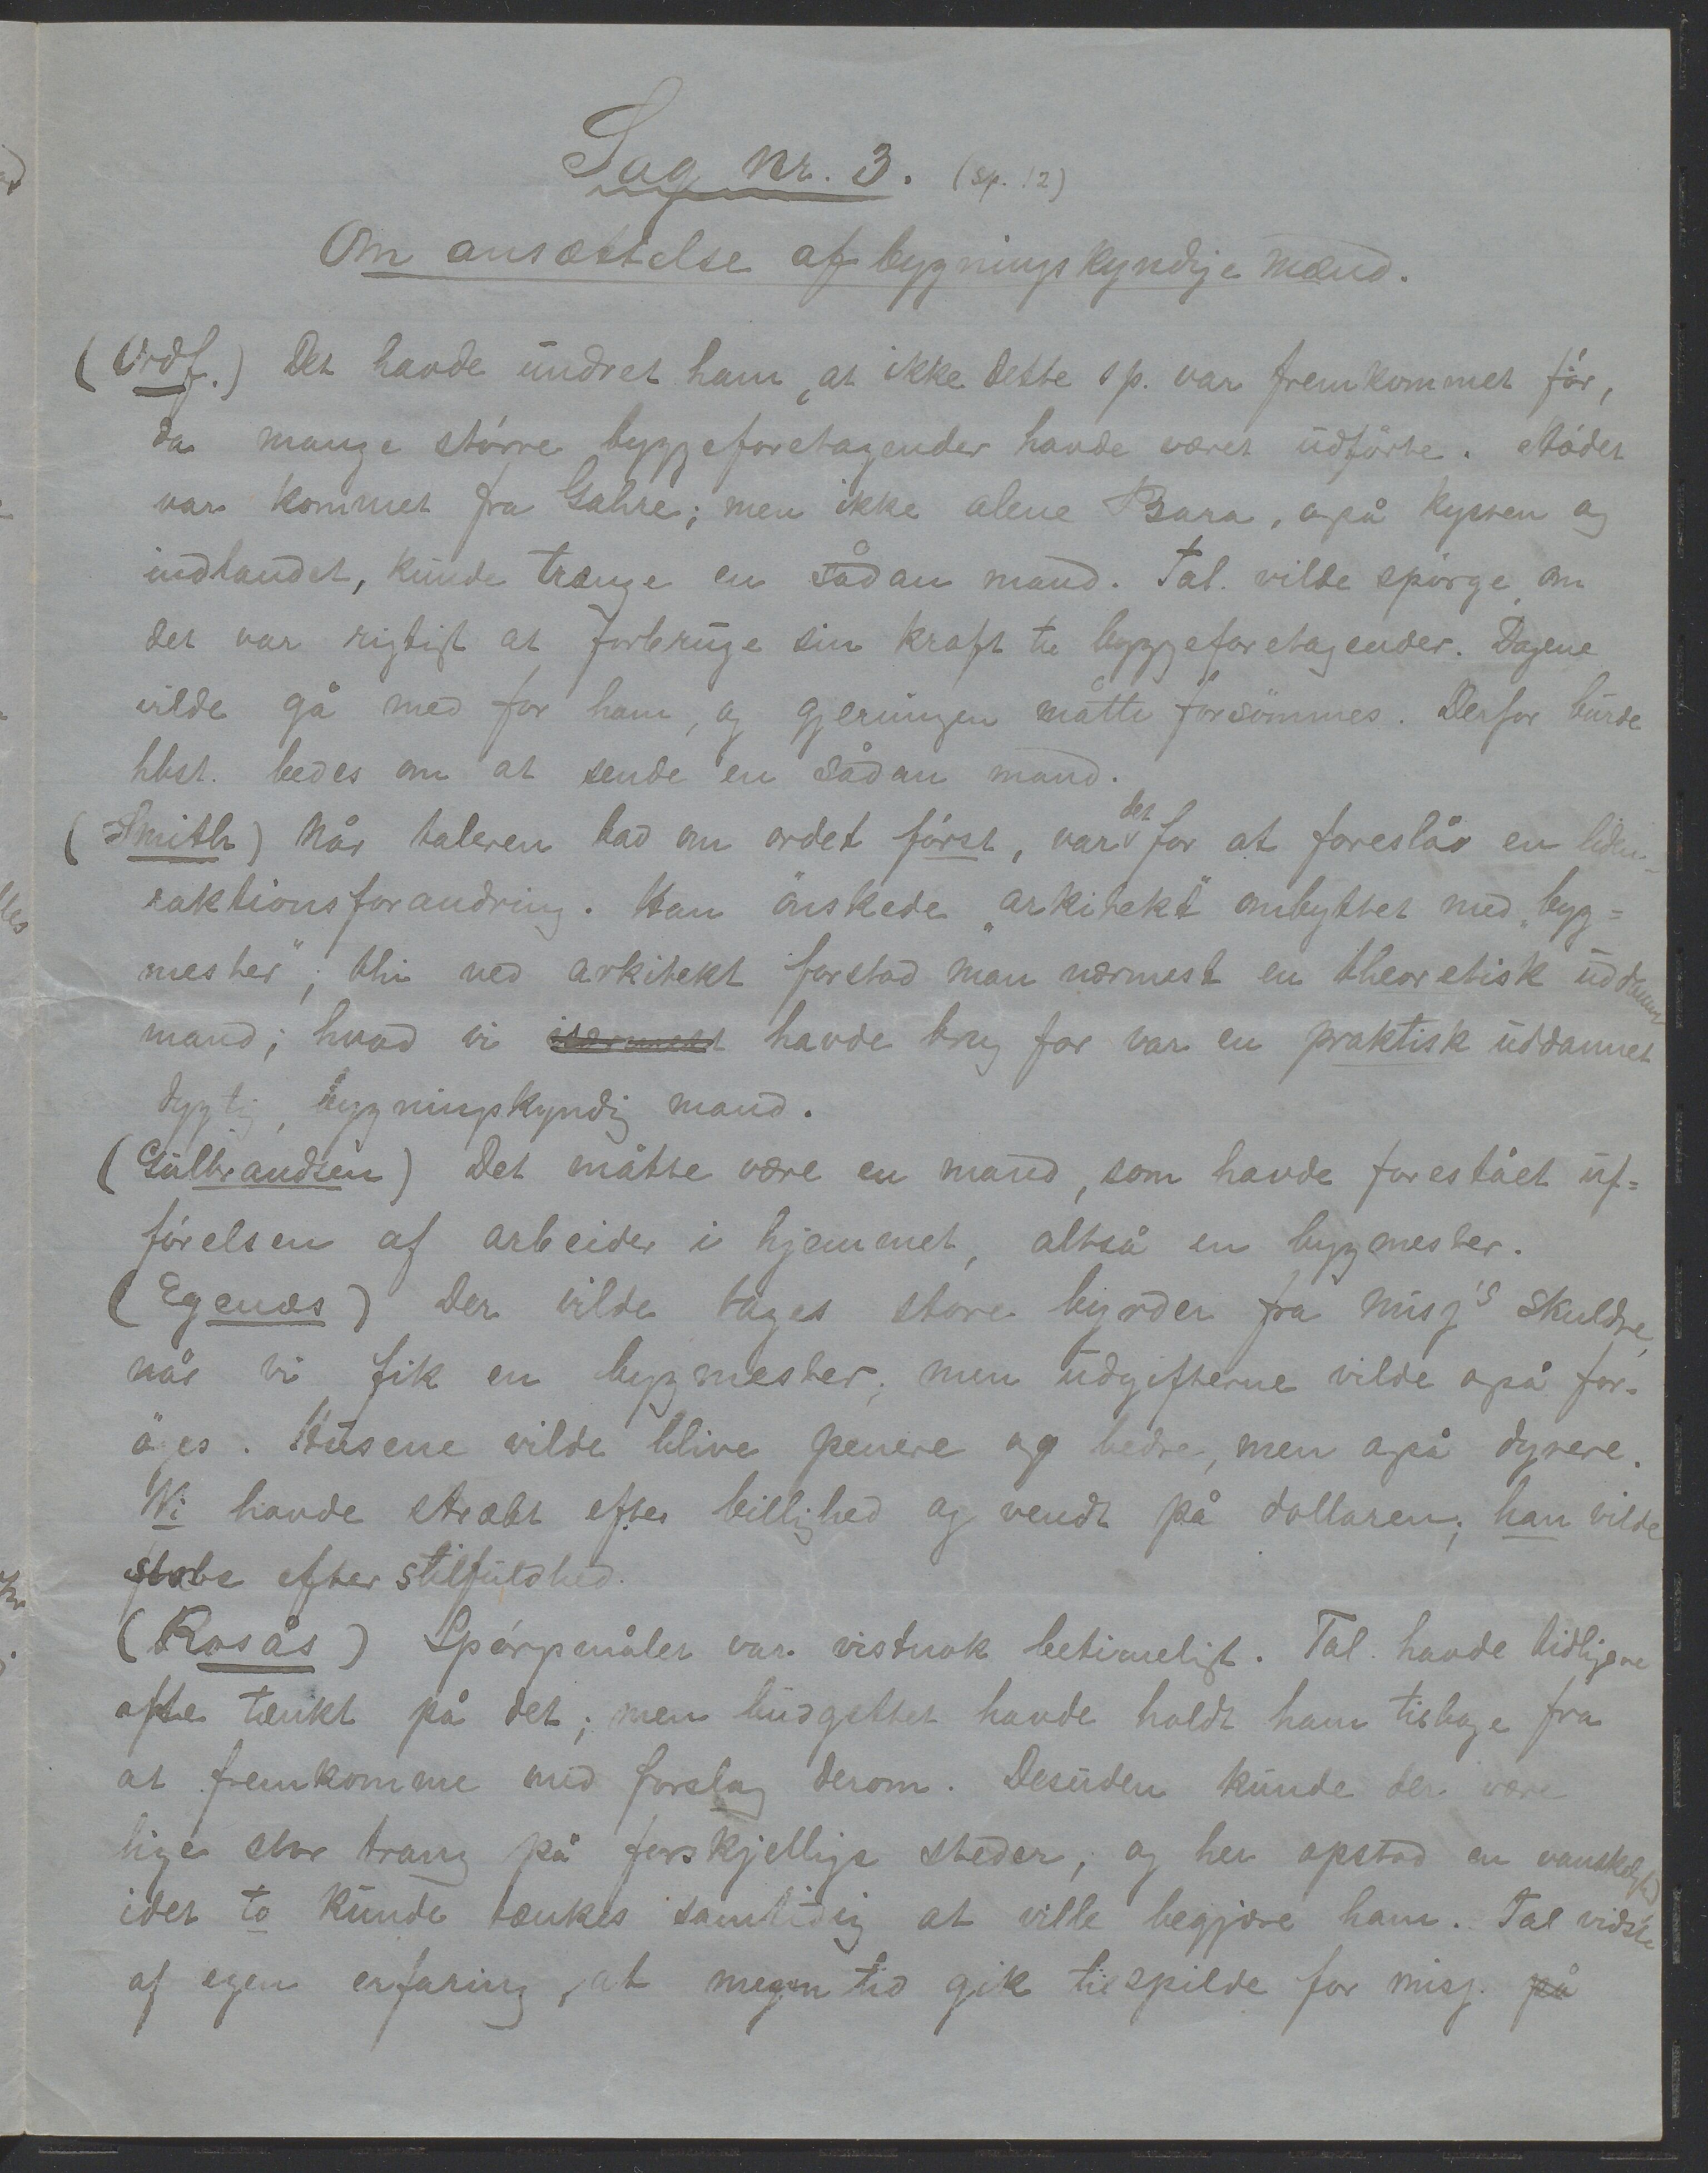 Sag nr. 3. (sp. 12)
Om ansættelse af bygningskyndige mænd.
(Ordf.) Det havde undret ham, at ikke dette sp. var fremkommet før,
da mange større byggeforetagender havde været udførte. Mødet
var kommet fra ; men ikke alene Bara, også kysten og
indlandet, kunde trænge en sådan mand. Tal. vilde spørge, om
det var rigtigt at forbruge sin kraft til byggeforetagender. Dagene
vilde gå med for ham, og gjerningen måtte forsömmes. Derfor burde
hbst. bedes om at sende en sådan mand.
(Smith) Når taleren bad om ordet först, var det for at foreslå en liden
raktionsforandring. Han önskede "arkitekt" ombyttet med "byg=
mester"; thi ved arkitekt forstod man nærmest en theoretisk uddannet
mand; hvad vi havde brug for var en praktisk uddannet
dygtig, bygningskyndig mand.
(Gulbrandsen) Det måtte være en mand, som havde forestået ud=
førelsen af arbeider i hjemmet, altså en bygmester.
(Egenæs) Der vilde tages store byrder fra misj's skuldre,
når vi fik en bygmester; men udgifterne vilde også for-
öges. Husene vilde blive penere og bedre, men også dyrere.
Vi havde stræbt efter billighed og vendt på dollaren; han vilde
stræbe efter stilfuldhed.
(Rosås) Spørgsmålet var vistnok betimeligt. Tal. havde tidligere
ofte tænkt på det; men budgettet havde holdt ham tilbage fra
at fremkomme med forslag derom. Desuden kunde der være
lige stor trang på forskjellige steder, og her opstod en vanskelighed,
idet to kunde tænkes samtidig at ville begjære ham. Tal vidste
af egen erfaring, at megen tid gik tilspilde for misj. på